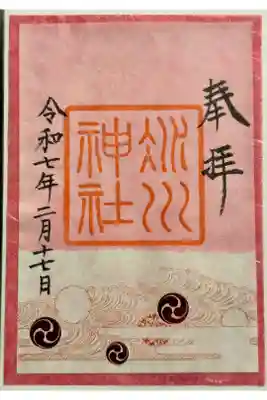 奉拝
氷川
神社
令和七年二月十七日